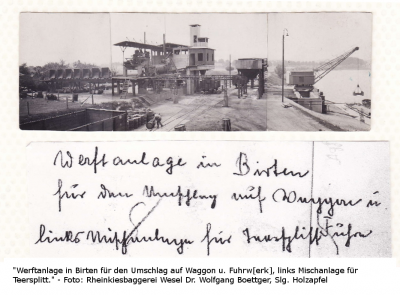 Werftanlage in Birten
für den Umschlag auf Waggon u.
links Mischanlage für Teersplitt Fuhrw
"Werftanlage in Birten für den Umschlag auf Waggon u. Fuhrw[erk], links Mischanlage für
Teersplitt." - Foto: Rheinkiesbaggerei Wesel Dr. Wolfgang Boettger, Slg. Holzapfel